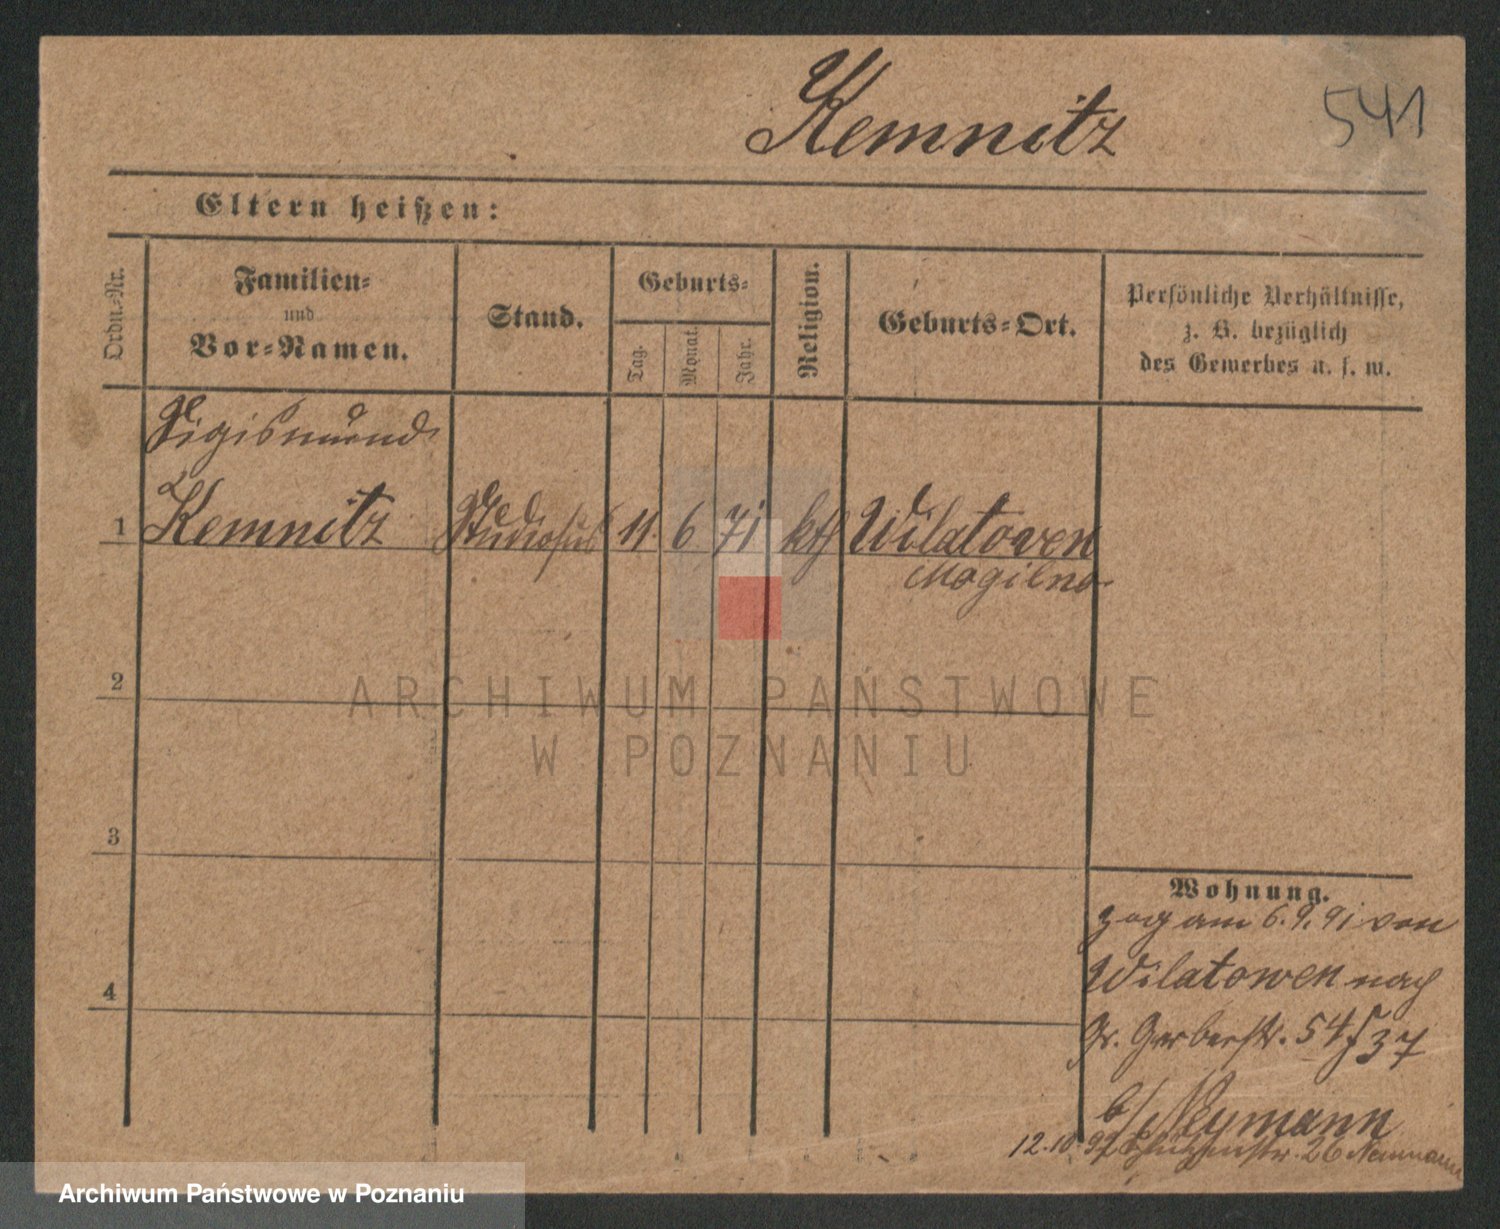 Kemnitz 541
Eltern heißen:
Ordn.-Nr.
Familien-
und
Vor-Namen.
Stand.
Geburts-
Tag.
Monat.
Jahr.
Religion.
Geburts-Ort.
Persönliche Verhältnisse,
z. B. bezüglich
des Gewerbes u. s. w.
Sigismund
1 Kemnitz Studiosus 11. 6 71 kth Wilatowen
Mogilno
2
ARCHIWUM PAŃSTWOWE
W POZNANIU
3
4
Wohnung.
zog am 6.9.91 von
Wilatowen nach
Gr. Gerberstr. 54/37
b/ Neymann
12.10. Schützenstr. 26 Neumann
Archiwum Państwowe w Poznaniu